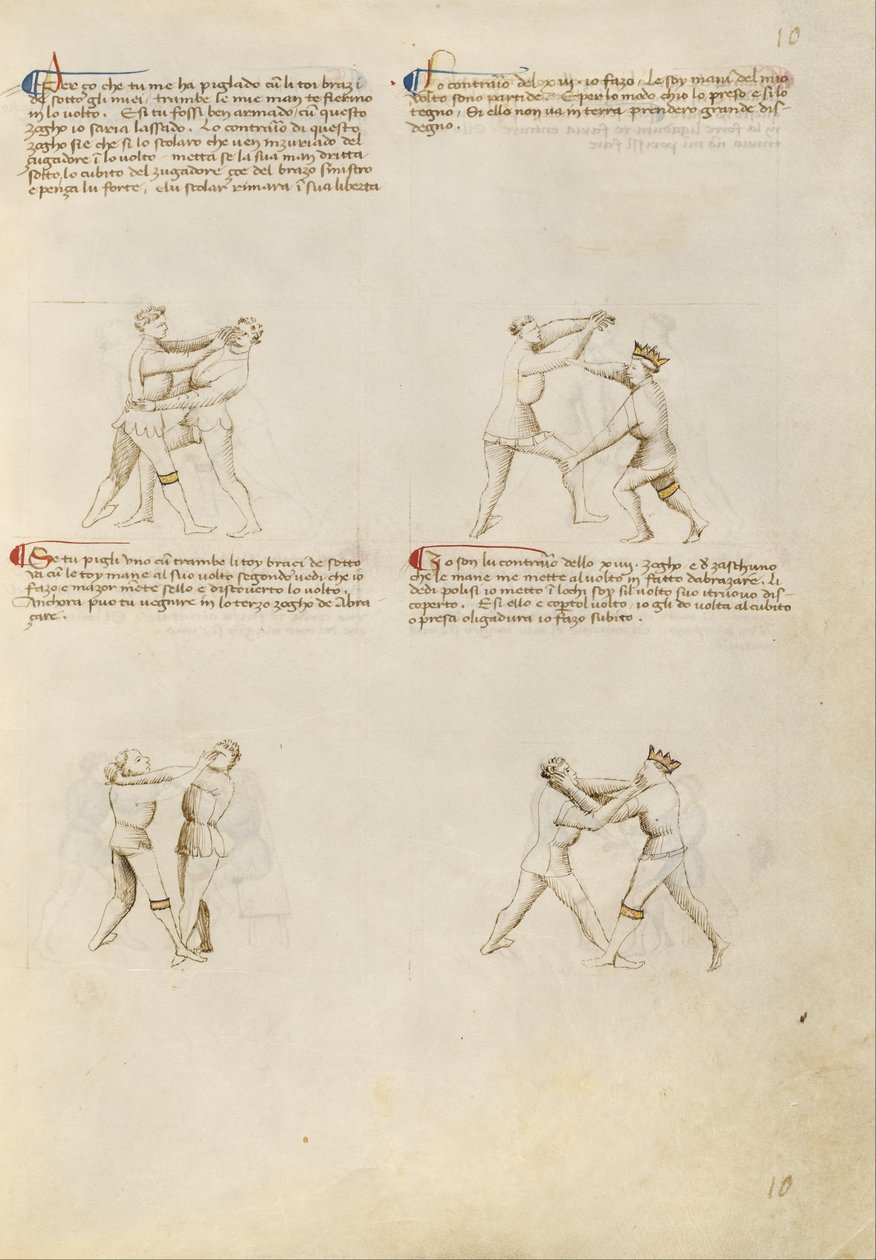 10
Per ço che tu me ha piglado cū li toi brazi
de sotto gli miei, trambe le mie man te fierino
in lo volto. E si tu fossi ben armado, cū questo
zogho io saria lassado. Lo contraīo di questo
zogho sie che si lo scolaro che ven inzuriado del
zugadore ī lo volto metta se la sua man dritta
sotto, lo cubito del zugadore çoe del brazo sinistro
e penza lu forte, e lu scolar rimara ī sua liberta
Lo contraīo del xiii. io fazo, Le soy mani del mio
volto sono partide. E per lo modo ch'io lo preso e si lo
tegno, Si ello non va in terra prendero grande dis-
degno.
Se tu pigli uno cū trambe li toy braci de sotto
va cū le toy mane al suo volto segondo vedi che io
fazo e mazor mēte sello e discoverto lo volto.
Anchora puo tu vegnire in lo terzo zogho de Abra
çare.
Io son lu contraīo dello xiiii. zogho e d zaschuno
che le mane me mette al volto in fatto dabrazare. Li
dedi polisi io metto ī lochi soy sil volto suo itruovo dis-
coperto. E si ello e coptol volto, io gli do volta al cubito
o presa o ligadura io fazo subito.
10